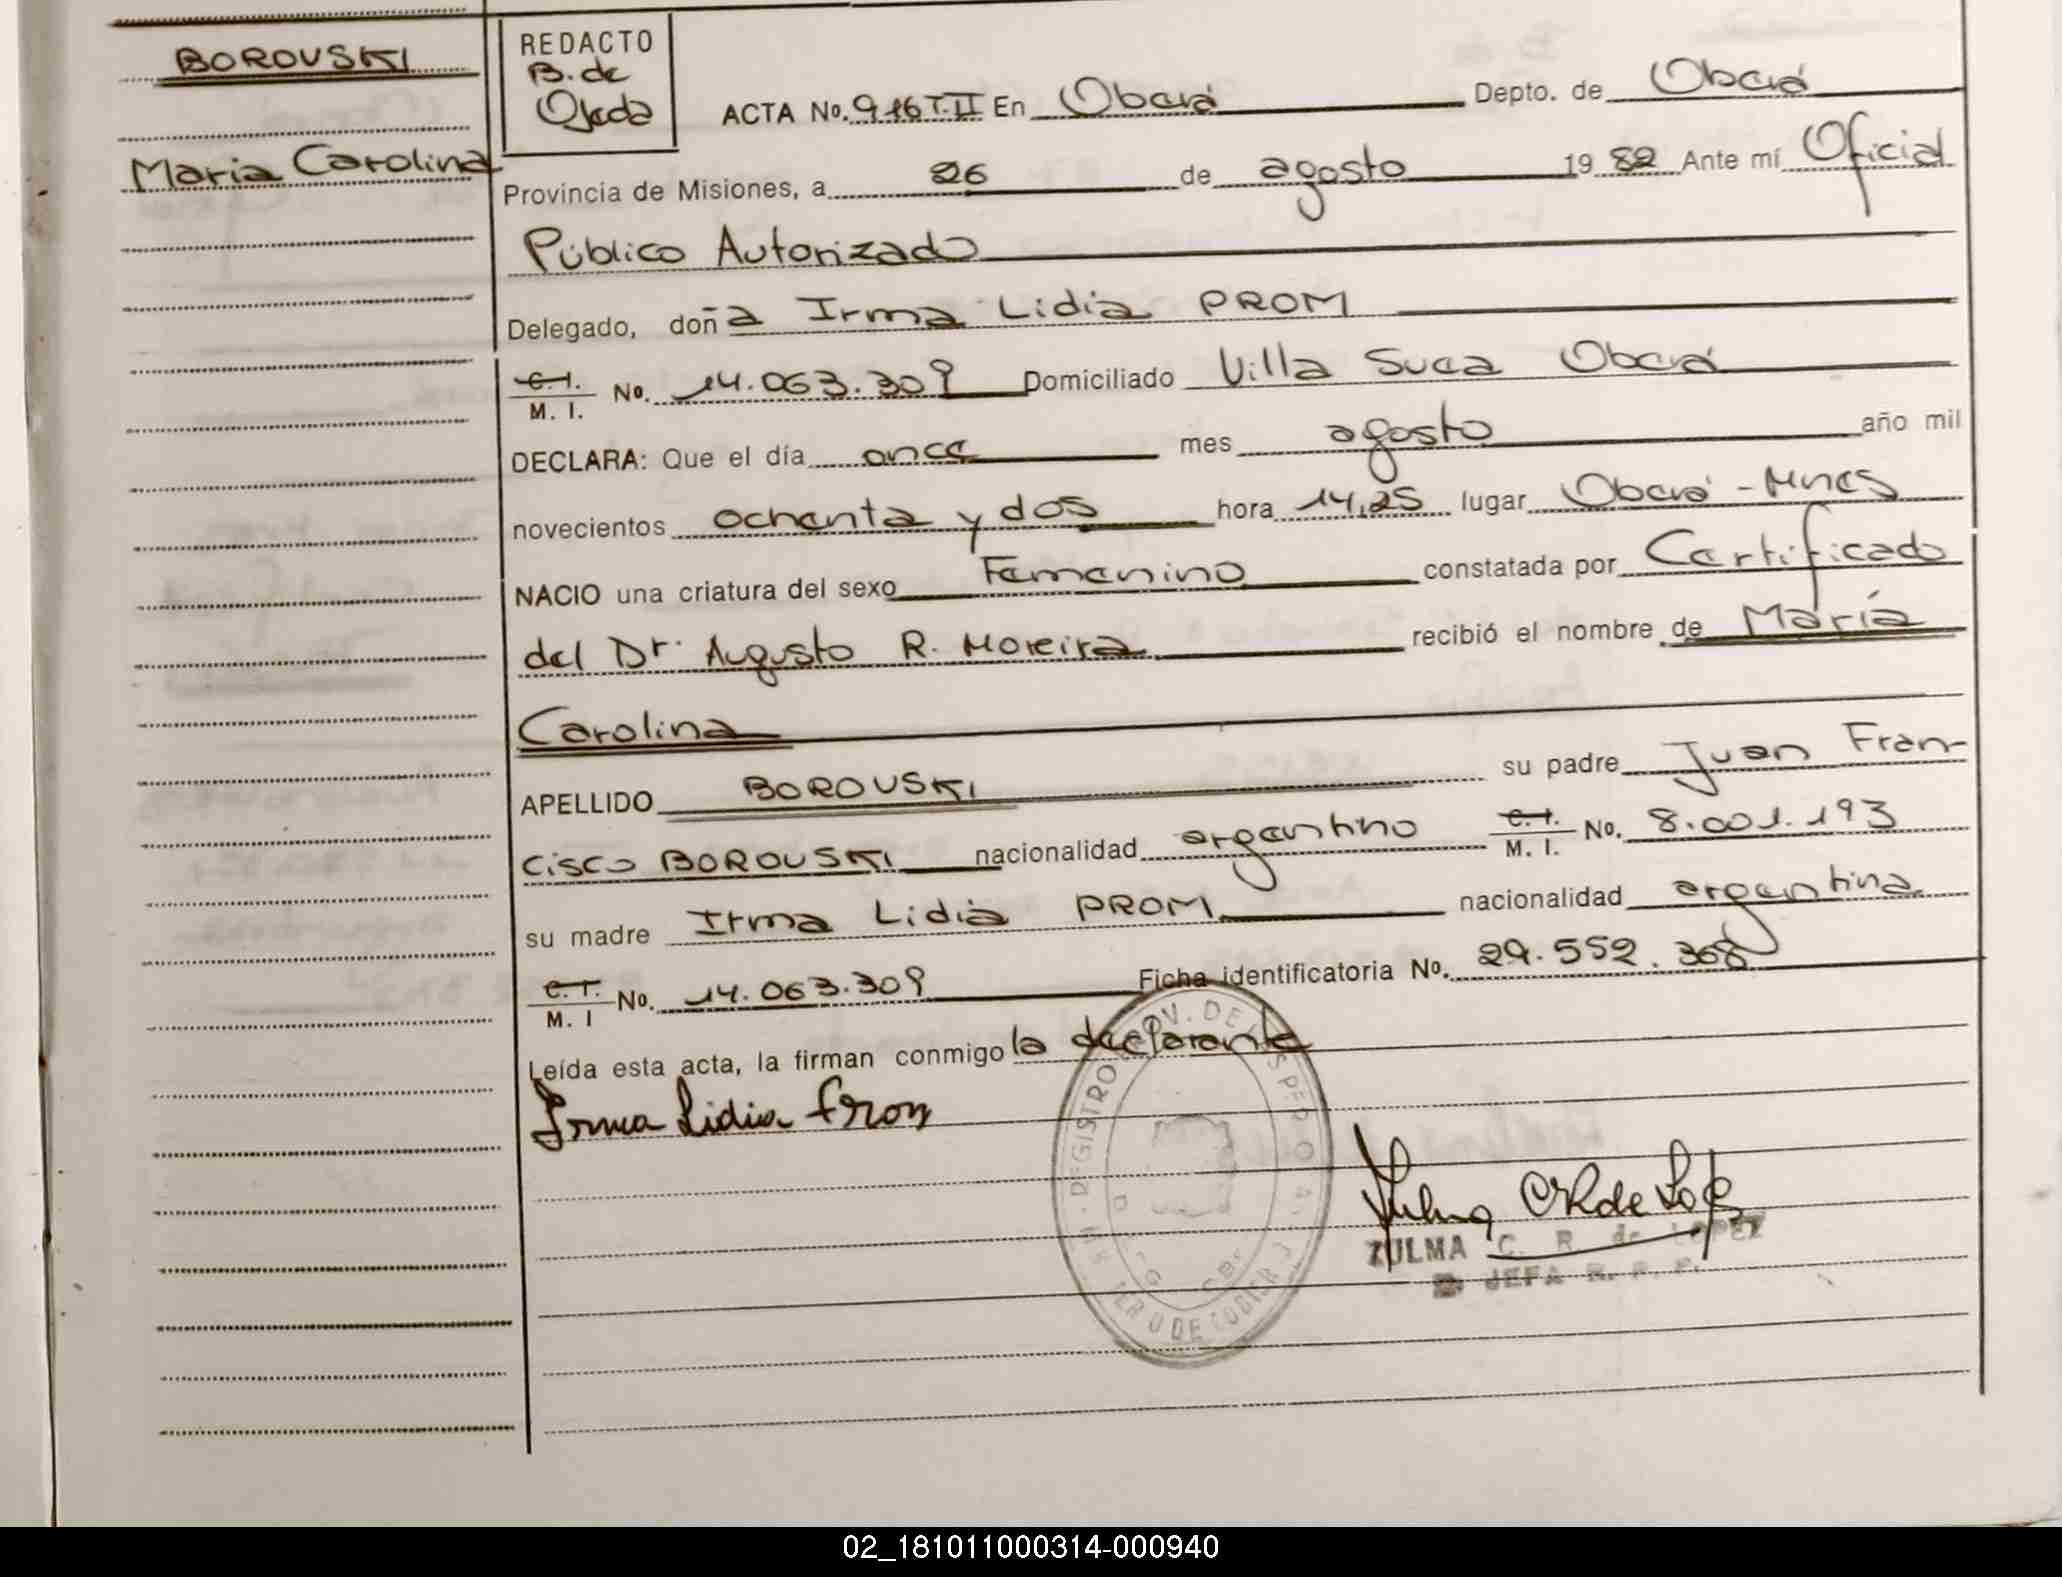 BOROVSKI
Maria Carolina
REDACTO
B. de
Ojeda
ACTA No. 916 T. II En Oberá Depto. de Oberá
Provincia de Misiones, a 26 de agosto 19 82 Ante mí Oficial
Público Autorizado
Delegado, doña Irma Lidia PROM
C. I.
M. I. No. 14.063.309 Domiciliado Villa Suca Oberá
DECLARA: Que el día once mes agosto año mil
novecientos ochenta y dos hora 14,25 lugar Oberá - Mnes
NACIO una criatura del sexo Femenino constatada por Certificado
del Dr. Augusto R. Moreira recibió el nombre de María
Carolina
APELLIDO BOROVSKI su padre Juan Fran-
cisco BOROVSKI nacionalidad argentino C. I.
M. I. No. 8.001.193
su madre Irma Lidia PROM nacionalidad argentina
C. I.
M. I No. 14.063.309 Ficha identificatoria No. 29.552.368
Leída esta acta, la firman conmigo la declarante
Irma Lidia Prom
REGISTRO PROV. DE LAS PERSONAS
ZULMA C. R. de LOPEZ
JEFA R. P. P.
02_181011000314-000940